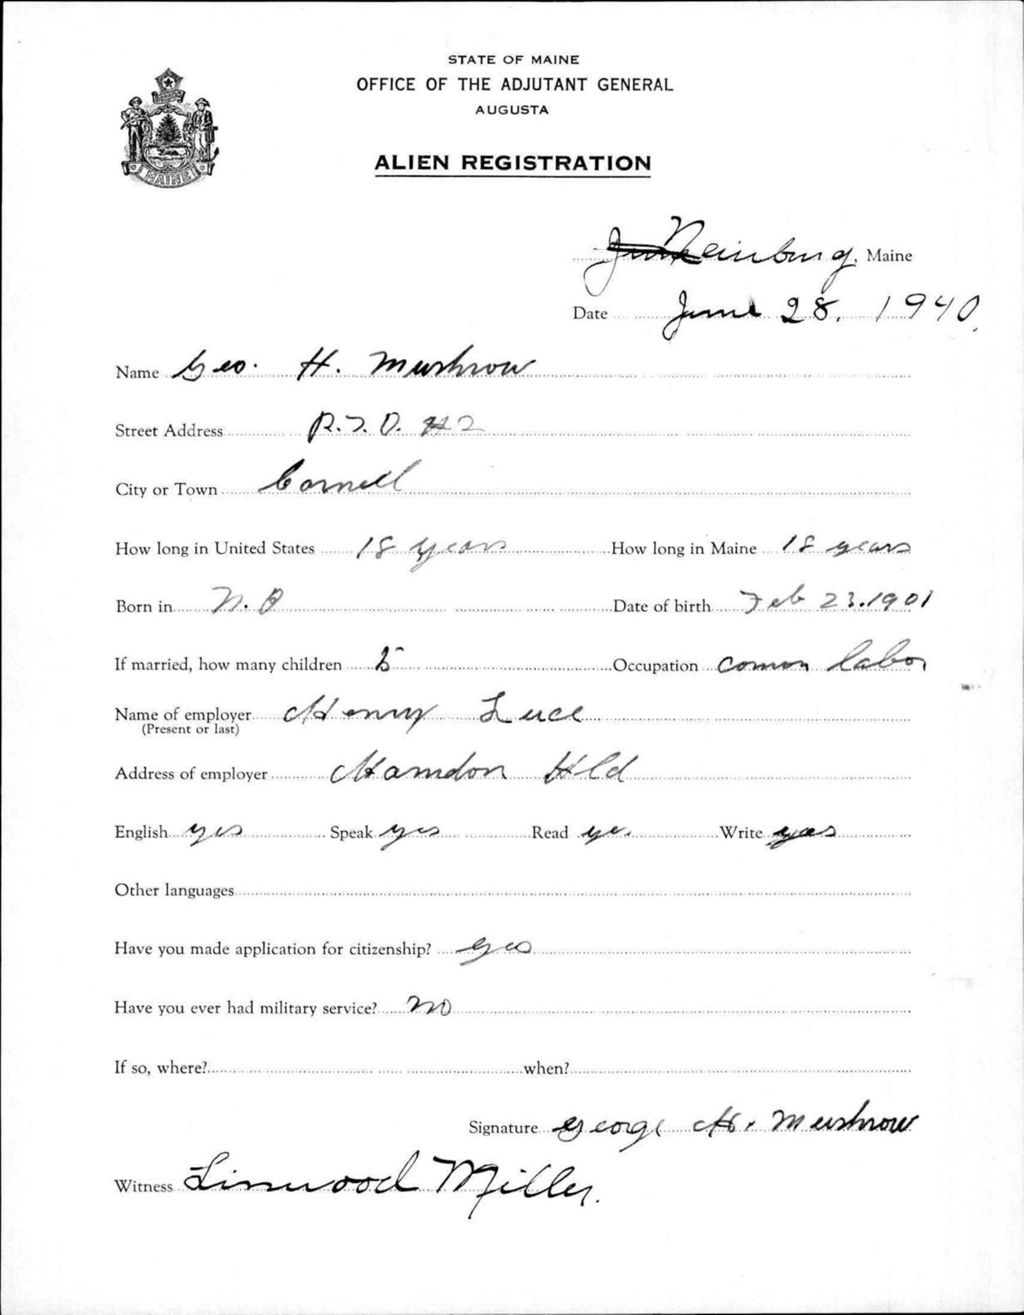 STATE OF MAINE
OFFICE OF THE ADJUTANT GENERAL
AUGUSTA
ALIEN REGISTRATION
MAINE
Maine
Date June 28, 1940
Name Geo. H. Mushrow
Street Address R.F.D. #2
City or Town
How long in United States 18 years How long in Maine 18 years
Born in N. B Date of birth Feb 23, 1901
If married, how many children 5 Occupation comon labor
Name of employer Henry Luce
(Present or last)
Address of employer
English yes Speak yes Read yes Write yes
Other languages
Have you made application for citizenship? yes
Have you ever had military service? NO
If so, where? when?
Signature George H. Mushrow
Witness Linwood Miller.